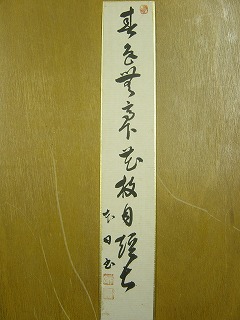 春色無高下花枝自短長